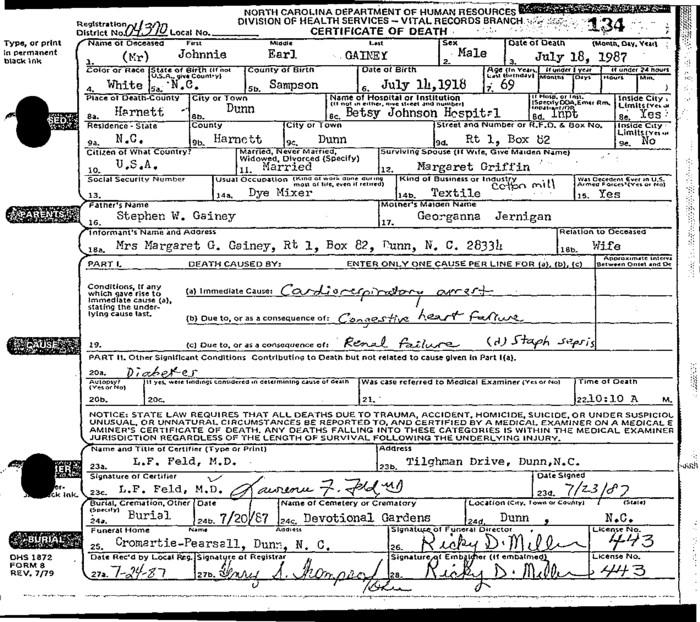 NORTH CAROLINA DEPARTMENT OF HUMAN RESOURCES
DIVISION OF HEALTH SERVICES – VITAL RECORDS BRANCH
CERTIFICATE OF DEATH
134
Registration District No. 04370 Local No.
Type, or print in permanent black ink
Name of Deceased First Middle Last Sex Date of Death (Month, Day, Year)
1. (Mr) Johnnie Earl GAINEY 2. Male 3. July 18, 1987
Color or Race State of Birth (If not U.S.A., give Country) County of Birth Date of Birth Age (In Years, Last Birthday) If under 1 year If under 24 hours
Months Days Hours Min.
4. White 5a. N.C. 5b. Sampson 6. July 14,1918 7. 69
Place of Death-County City or Town Name of Hospital or Institution (If not in either, give street and number) If Hosp. or Inst. (Specify DOA, Emer Rm. Inpatient/OP) Inside City Limits
8a. Harnett 8b. Dunn 8c. Betsy Johnson Hospital 8d. Inpt 8e. Yes
Residence - State County City or Town Street and Number or R.F.D. & Box No. Inside City Limits
9a. N.C. 9b. Harnett 9c. Dunn 9d. Rt 1, Box 82 9e. No
Citizen of What Country? Married, Never Married, Widowed, Divorced (Specify) Surviving Spouse (If Wife, Give Maiden Name)
10. U.S.A. 11. Married 12. Margaret Griffin
Social Security Number Usual Occupation (Kind of work done during most of life, even if retired) Kind of Business or Industry Was Decedent Ever in U.S. Armed Forces? (Yes or No)
13. 14a. Dye Mixer 14b. Textile Cotton mill 15. Yes
PARENTS
Father's Name Mother's Maiden Name
16. Stephen W. Gainey 17. Georganna Jernigan
Informant's Name and Address Relation to Deceased
18a. Mrs Margaret G. Gainey, Rt 1, Box 82, Dunn, N. C. 28334 18b. Wife
PART I. DEATH CAUSED BY: ENTER ONLY ONE CAUSE PER LINE FOR (a), (b), (c) Approximate Interval Between Onset and De
Conditions, if any which gave rise to immediate cause (a), stating the underlying cause last.
(a) Immediate Cause: Cardiorespiratory arrest
(b) Due to, or as a consequence of: Congestive heart failure
CAUSE
19. (c) Due to, or as a consequence of: Renal failure (d) Staph sepsis
PART II. Other Significant Conditions Contributing to Death but not related to cause given in Part I(a).
20a. Diabetes
Autopsy? (Yes or No) If yes, were findings considered in determining cause of death Was case referred to Medical Examiner (Yes or No) Time of Death
20b. 20c. 21. 22. 10:10 A M.
NOTICE: STATE LAW REQUIRES THAT ALL DEATHS DUE TO TRAUMA, ACCIDENT, HOMICIDE, SUICIDE, OR UNDER SUSPICIOU
UNUSUAL, OR UNNATURAL CIRCUMSTANCES BE REPORTED TO, AND CERTIFIED BY A MEDICAL EXAMINER ON A MEDICAL E
AMINER'S CERTIFICATE OF DEATH. ANY DEATHS FALLING INTO THESE CATEGORIES IS WITHIN THE MEDICAL EXAMINER
JURISDICTION REGARDLESS OF THE LENGTH OF SURVIVAL FOLLOWING THE UNDERLYING INJURY.
Name and Title of Certifier (Type or Print) Address
23a. L.F. Feld, M.D. 23b. Tilghman Drive, Dunn,N.C.
Signature of Certifier Date Signed
23c. L.F. Feld, M.D. Lawrence F. Feld MD 23d. 7/23/87
Burial, Cremation, Other (Specify) Date Name of Cemetery or Crematory Location (City, Town or County) (State)
24a. Burial 24b. 7/20/87 24c. Devotional Gardens 24d. Dunn, N.C.
BURIAL
Funeral Home Name Address Signature of Funeral Director License No.
25. Cromartie-Pearsall, Dunn, N. C. 26. Ricky D. Miller 443
Date Rec'd by Local Reg. Signature of Registrar Signature of Embalmer (If embalmed) License No.
27a. 7-24-87 27b. Henry S. Thompson 28. Ricky D. Miller 443
DHS 1872
FORM 8
REV. 7/79